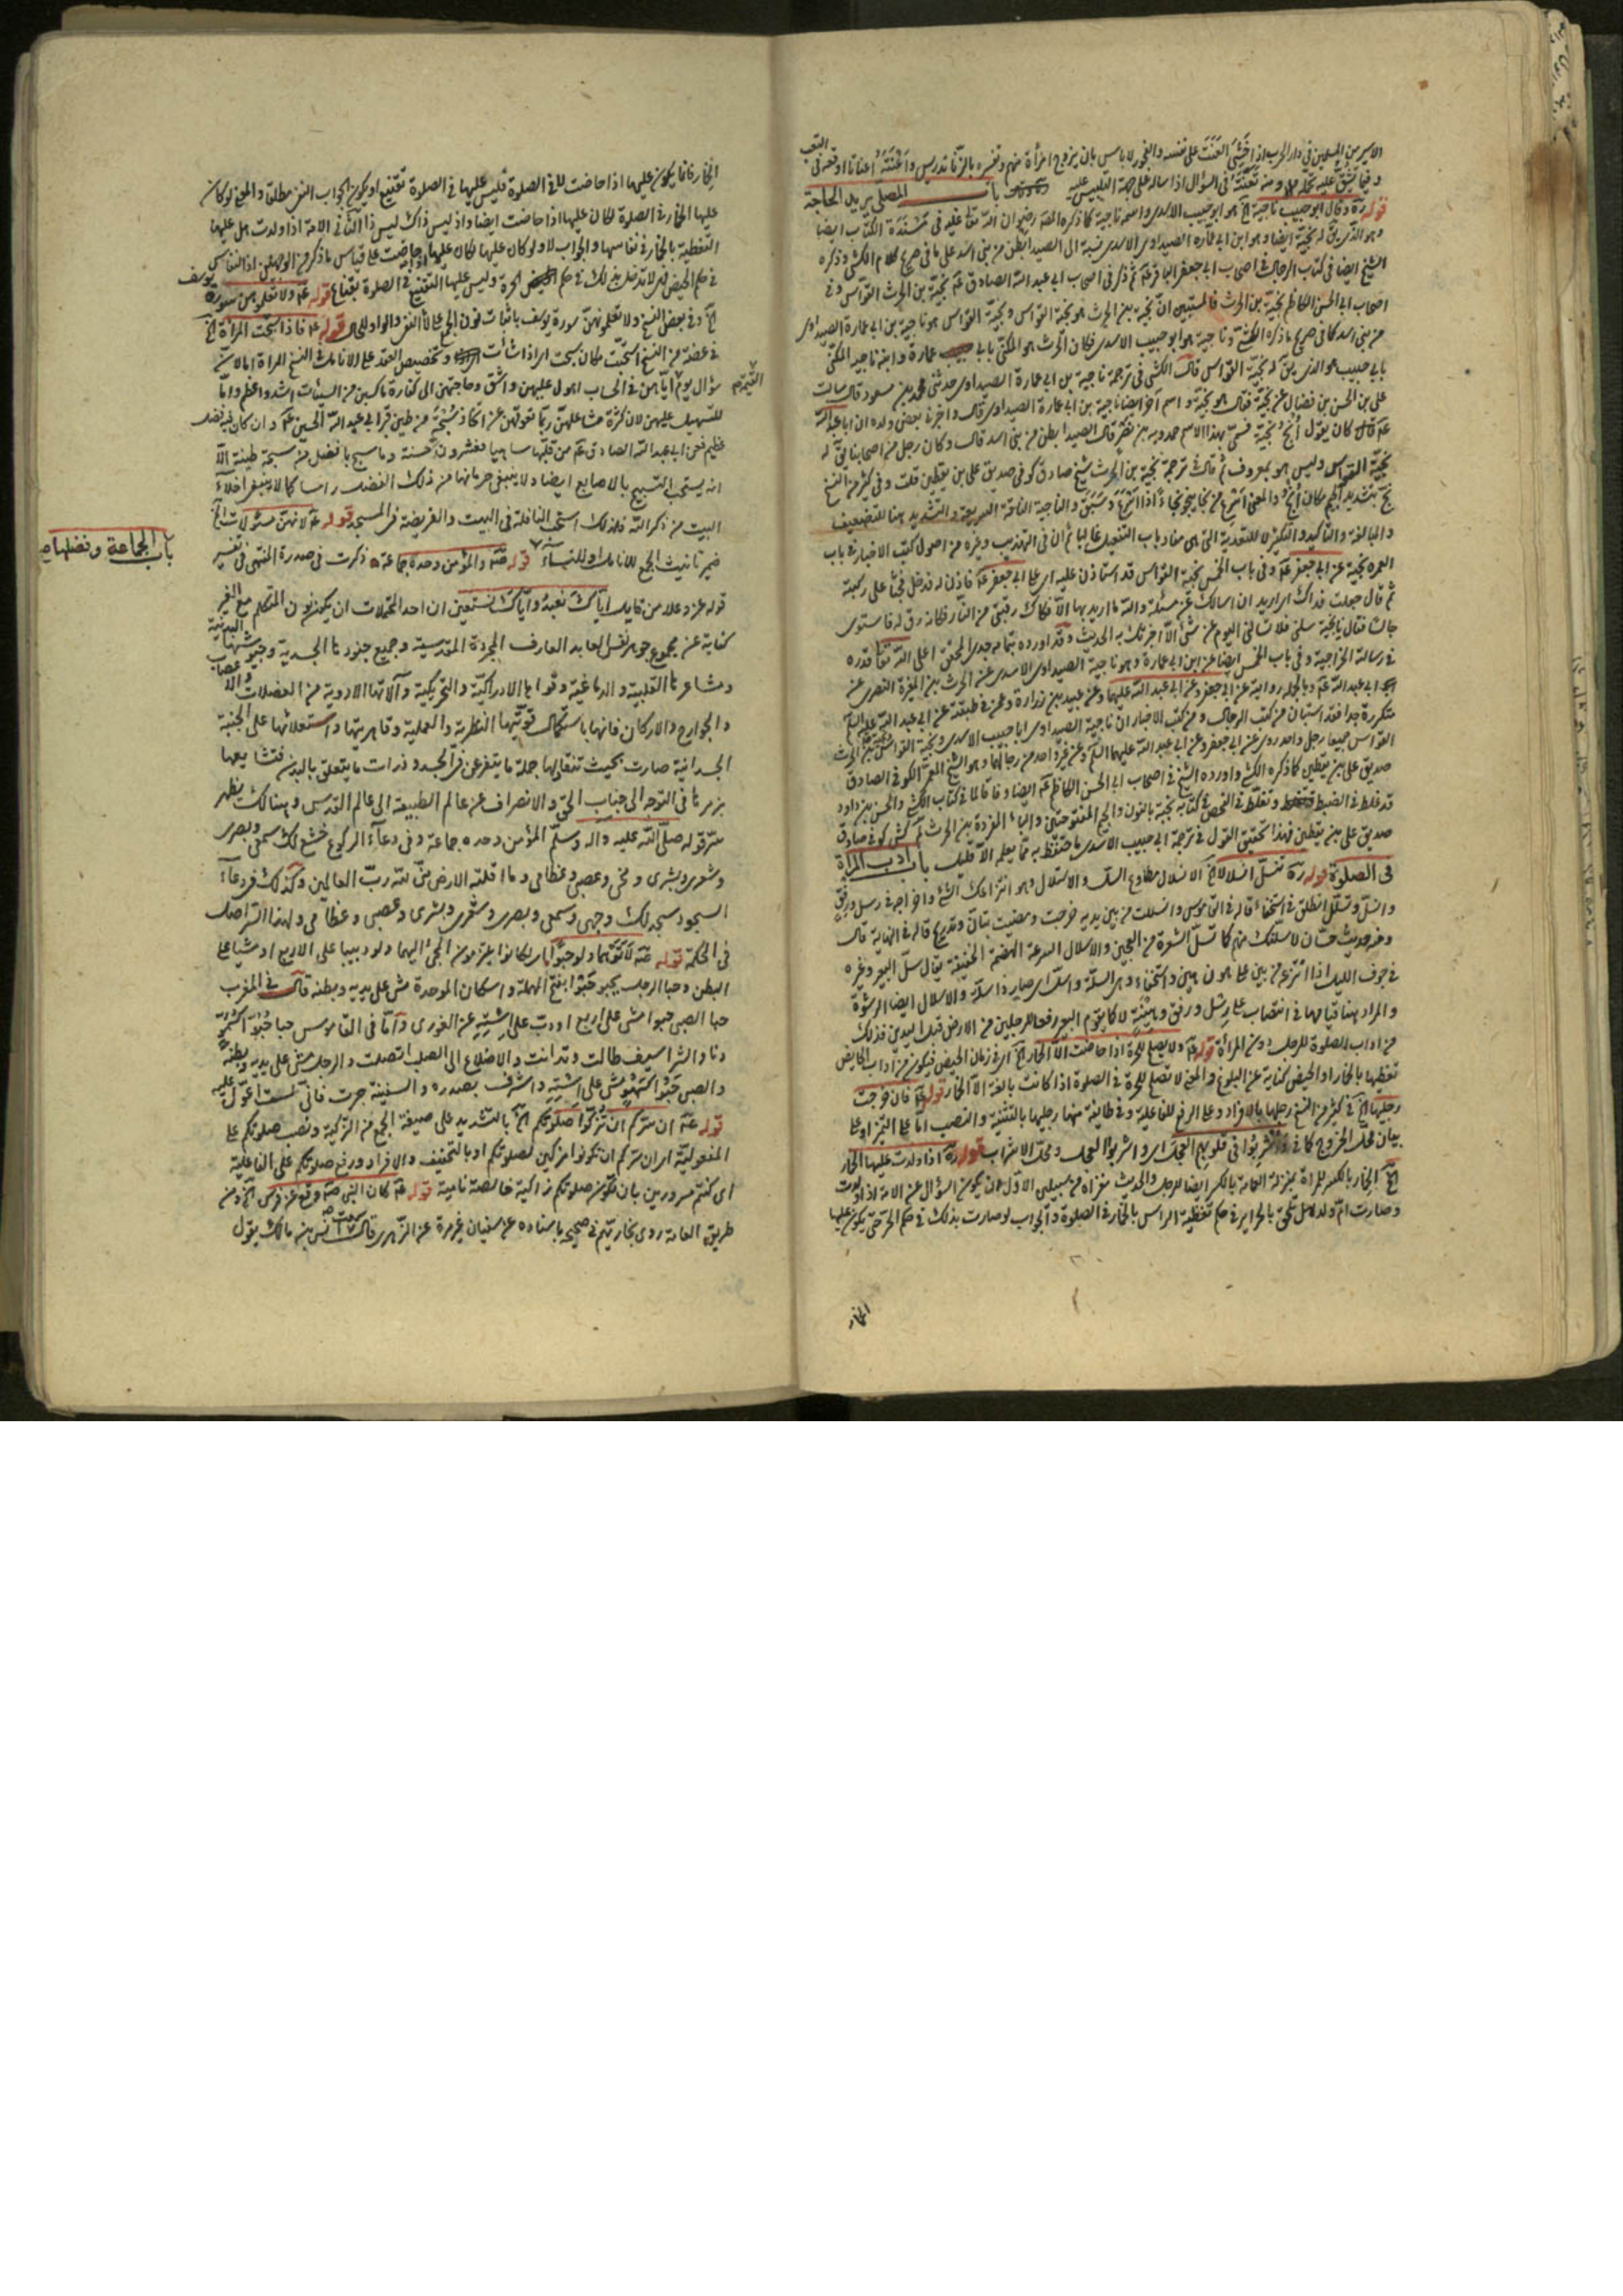 الاسير من المسلمين في دار الحرب اذا خشي العنت على نفسه والفجور لا باس بان يتزوج امرأة منهم وتفسيره بالزنا تدريس واعنته اعناتا اوقعه في التعب
وفيما يشق عليه تحمله ومنه تعنته في السؤال اذا ساله على جهة التلبيس عليه باب المصلي يريد الحاجة
قوله ره وقال ابو حبيب ناجية آه هو ابو حبيب الاسدي واسمه ناجية كما ذكره المصنف رضوان الله تعالى عليه في مسندة الكتاب ايضا
وهو الذي يق له نجية ايضا وهو ابن ابي عمارة الصيداوي الاسدي نسبة الى الصيدا بطن من بني اسد على ما في صريح كلام الكشي وذكره
الشيخ ايضا في كتاب الرجال في اصحاب ابي جعفر الباقر عه ثم ذكر في اصحاب ابي عبد الله الصادق عه نجية بن الحرث القواس وفي
اصحاب ابي الحسن الكاظم نجية بن الحرث فالمستبين ان نجية بن الحرث هو نجية القواس ونجية القواس هو ناجية بن ابي عمارة الصيداوي
من بني اسد كما في صريح ما ذكره الكشي وناجية هو ابو حبيب الاسدي فكان الحرث هو المكنى بابي عمارة وابنه ناجية المكنى
بابي حبيب هو الذي يق له نجية القواس قال الكشي في ترجمة ناجية بن ابي عمارة الصيداوي حدثني محمد بن مسعود قال سالت
علي بن الحسن بن فضال عن نجية فقال هو نجية واسم آخر ايضا ناجية بن ابي عمارة الصيداوي قال واخبرني بعض ولده ان ابا عبد الله
عه كان يقول انج نجية فسمي بهذا الاسم حمدويه بن نصير قال الصيدا بطن من بني اسد قال وكان رجل من اصحابنا يق له
نجية القواس وليس هو بمعروف ثم قال في ترجمة نجية بن الحرث شيخ صادق كوفي صديق علي بن يقطين قلت وفي كثير من النسخ
نج بتشديد الجيم مكان انج والمعنى اسرع من نجا ينجو نجاء اذا اسرع وسبق والناجية الناقة السريعة والتشديد هنا للتضعيف
والمبالغة والتاكيد والتكثير لا للتعدية التي هي مفاد باب التفعيل غالبا ثم ان في التهذيب وغيره من اصول كتب الاخبار في باب
العمرة نجية عن ابي جعفر عه وفي باب الخمس نجية القواس قد استاذن عليه اي على ابي جعفر عه فاذن له فدخل فجثا على ركبتيه
ثم قال جعلت فداك اني اريد ان اسالك عن مسئلة والله ما اريد بها الا فكاك رقبتي من النار فكانه رق له فاستوى
جالسا فقال يا نجية سلني فلا تسالني اليوم عن شئ الا اخبرتك به الحديث وقد اورده بتمامه جدي المحقق اعلى الله تعا قدره
في رسالته الخراجية وفي باب الخمس ايضا عن ابن ابي عمارة وهو ناجية الصيداوي الاسدي عن الحرث بن المغيرة النصري عن
ابي عبد الله عه وبالجملة روايته عن ابي جعفر وعن ابي عبد الله عليهما وعن عبيد بن زرارة وعمن في طبقته عن ابي عبد الله عليه السلام
متكررة جدا فقد استبان من كتب الرجال ومن كتب الاخبار ان ناجية الصيداوي ابا حبيب الاسدي ونجية القواس
القواس جميعا رجل واحد روى عن ابي جعفر وعن ابي عبد الله عليهما السلم وعن غير واحد من رجالهما وهو الشيخ الكوفي الصادق
صديق علي بن يقطين كما ذكره الكشي واورده الشيخ في اصحاب ابي الحسن الكاظم عه ايضا وفاقا لما في كتاب الكشي والحسن بن داود
قد غلط في الضبط وتغلط في الفحص في كتابه نجبة بالنون والجيم المفتوحتين والباء المفردة بن الحرث كش كوفي صادق
صديق علي بن يقطين فهذا تحقيق القول في ترجمة ابي حبيب الاسدي فاحتفظ به فما يعلمه الا قليل باب ادب المراة
في الصلوة قوله ره تنسل انسلالا آه الانسلال مطاوع السل والاستلال وهو انتزاعك الشئ واخراجه في رسل ورفق
وانسل وتسلل انطلق في استخفاء قاله في القاموس وانسللت من بين يديه خرجت ومضيت بتان وتدريج قاله في النهاية قال
وفي حديث حسان لاسلنك منهم كما تسل الشعرة من العجين والاسلال السرعة الخفيفة يقال سل البعير وغيره
في جوف الليل اذا انتزعه من بين الابل وهي السلة واسل اي صار ذا سلة والاسلال ايضا الرشوة
والمراد بهنا قيامها في انتصاب على رسل ورفق وهينة لا كما يقوم البعير رفعا للرجلين من الارض قبل اليدين فذلك
من اداب الصلوة للرجل دون المرأة قوله عه ولا يصلح للحرة اذا حاضت الا الخمار آه اي في زمان الحيض فيكون من آداب الحايض
تغطيها بالخمار او الحيض كناية عن البلوغ والمعنى لا تصلح للحرة في الصلوة اذا كانت بالغة الا الخمار قوله عه فان خرجت
رجليها آه في كثير من النسخ رجلها بالافراد وعلى الرفع للفاعلية وفي طايفة منها رجليها بالتثنية والنصب اما على التميز او على
بيان محل الخروج كما في واشربوا في قلوبهم العجل اي واشربوا العجل ومحل الاشراب قوله ره اذا ولدت عليها الخمار
آه الخمار بالكسر للمراة بمنزلة العمامة بالكسر ايضا للرجل والحديث مغزاه من سبيلين الاول ان يكون السؤال عن الامة اذا ولدت
وصارت ام ولد هل تلحق بالحراير في حكم تغطية الراس بالخمار في الصلوة والجواب لو صارت بذلك في حكم الحرة حتى يكون عليها
الخمار
الخمار فانما يكون عليها اذا حاضت لا في الصلوة فليس عليها في الصلوة تقنيع او يكون الجواب النفي مطلقا والمعنى لو كان
عليها الخمار في الصلوة لكان عليها اذا حاضت ايضا واذ ليس ذاك ليس ذا الثاني في الامة اذا ولدت هل عليها
التغطية بالخمار في نفاسها والجواب لا ولو كان عليها لكان عليها اذا حاضت على قياس ما ذكر من الوجهين اذ النفاس
في حكم الحيض فهي لا تدخل بذلك في حكم الحرة وليس عليها التقنيع في الصلوة بقناع قوله عه ولا تعلموهن سورة يوسف
آه وفي بعض النسخ ولا تعلمونهن سورة يوسف باثبات نون الجمع على النفي والواو للحال قوله عه فاذا سبحت المراة آه
في عضة من النسخ اسبحت مكان سبحت اي اذا شاءت وتخصيص العقد على الانامل في النسخ المراة لما لا
سؤال يوم القيمة اياهن في الحساب اهول عليهن واشق وحاجتهن الى كفارة ما كسبن من السيئات اشد واعظم واما
للتسهيل عليهن لان كثرة مشاغلهن ربما تعوقهن عن اتخاذ سبحة من طين قبر ابي عبد الله الحسين عه وان كان فيه فضل
عظيم فعن ابي عبد الله الصادق عه من قلبها ساهيا فعشرون حسنة وما سبح بافضل من سبحة طينه الا
انه يستحب التسبيح بالاصابع ايضا ولا ينبغي حرمانها من ذلك الفضل راسا كما لا ينبغي اخلاء
البيت من ذكر الله فلذلك استحب النافلة في البيت والفريضة في المسجد قوله عه لانهن مسئولات آه
ضمير تانيث الجمع للانامل او للنساء قوله صه والمؤمن وحده جماعة ذكرت في صدرة المنتهى في تفسير
باب الجماعة وفضلها
قوله عز وعلا من قايل اياك نعبد واياك نستعين ان احد المحتملات ان يكون نون المتكلم مع الغير
كناية عن مجموع جوهر نفس العابد العارف المجردة القدسية وجميع جنودها الجسدية وجيوشها البدنية
ومشاعرها القلبية والدماغية وقواها الادراكية والتحريكية وآلاتها الادوية من العضلات والاعصاب
والجوارح والاركان فانها باستكمال قوتيها النظرية والعملية وقاهريتها واستعلائها على الجنبة
الجسدانية صارت بحيث تنقاد لها جملة ما يتفرع عن الجسد وذرات ما يتعلق بالبدن فتشايعها
بزمرها في التوجه الى جناب الحق والانصراف عن عالم الطبيعة الى عالم القدس وهنالك يظهر
سر قوله صلى الله عليه واله وسلم المؤمن وحده جماعة وفي دعاء الركوع خشع لك سمعي وبصري
وشعري وبشري ومخي وعصبي وعظامي وما اقلته الارض مني لله رب العالمين وكذلك في دعاء
السجود سجد لك وجهي وسمعي وبصري وشعري وبشري وعصبي وعظامي ولهذا اصل
في الحكمة قوله عه لاتوهما ولو حبوا اي لكانوا يلتزمون المجئ اليهما ولو دبيبا على الاربع او مشيا على
البطن وحبا الرجل يحبو حبوا بفتح المهملة واسكان الموحدة مشى على يديه وبطنه قال في المغرب
حبا الصبي حبوا مشى على اربع او دب على استه عن الغوري واما في القاموس حبا حبوا كسمو
دنا والشراسيف طالت وتدانت والاضلاع الى الصلب اتصلت والرجل مشى على يديه وبطنه
والصبي حبوا كسهو مشى على استه واشرف بصدره والسفينة جرت فاني لست اعول عليه
قوله عه ان سركم ان تزكوا صلوتكم آه بالتشديد على صيغة الجمع من التزكية ونصب صلوتكم على
المفعولية اي ان سركم ان تكونوا مزكين لصلوتكم او بالتخفيف والافراد ورفع صلوتكم على الفاعلية
اي كنتم مسرورين بان تكون صلوتكم زاكية خالصة نامية قوله عه كان النبي صه وقع عن فرس آه ومن
طريق العامة روى بخاريهم في صحيحه باسناده عن سفيان غير مرة عن الزهري قال سمعت انس بن مالك يقول